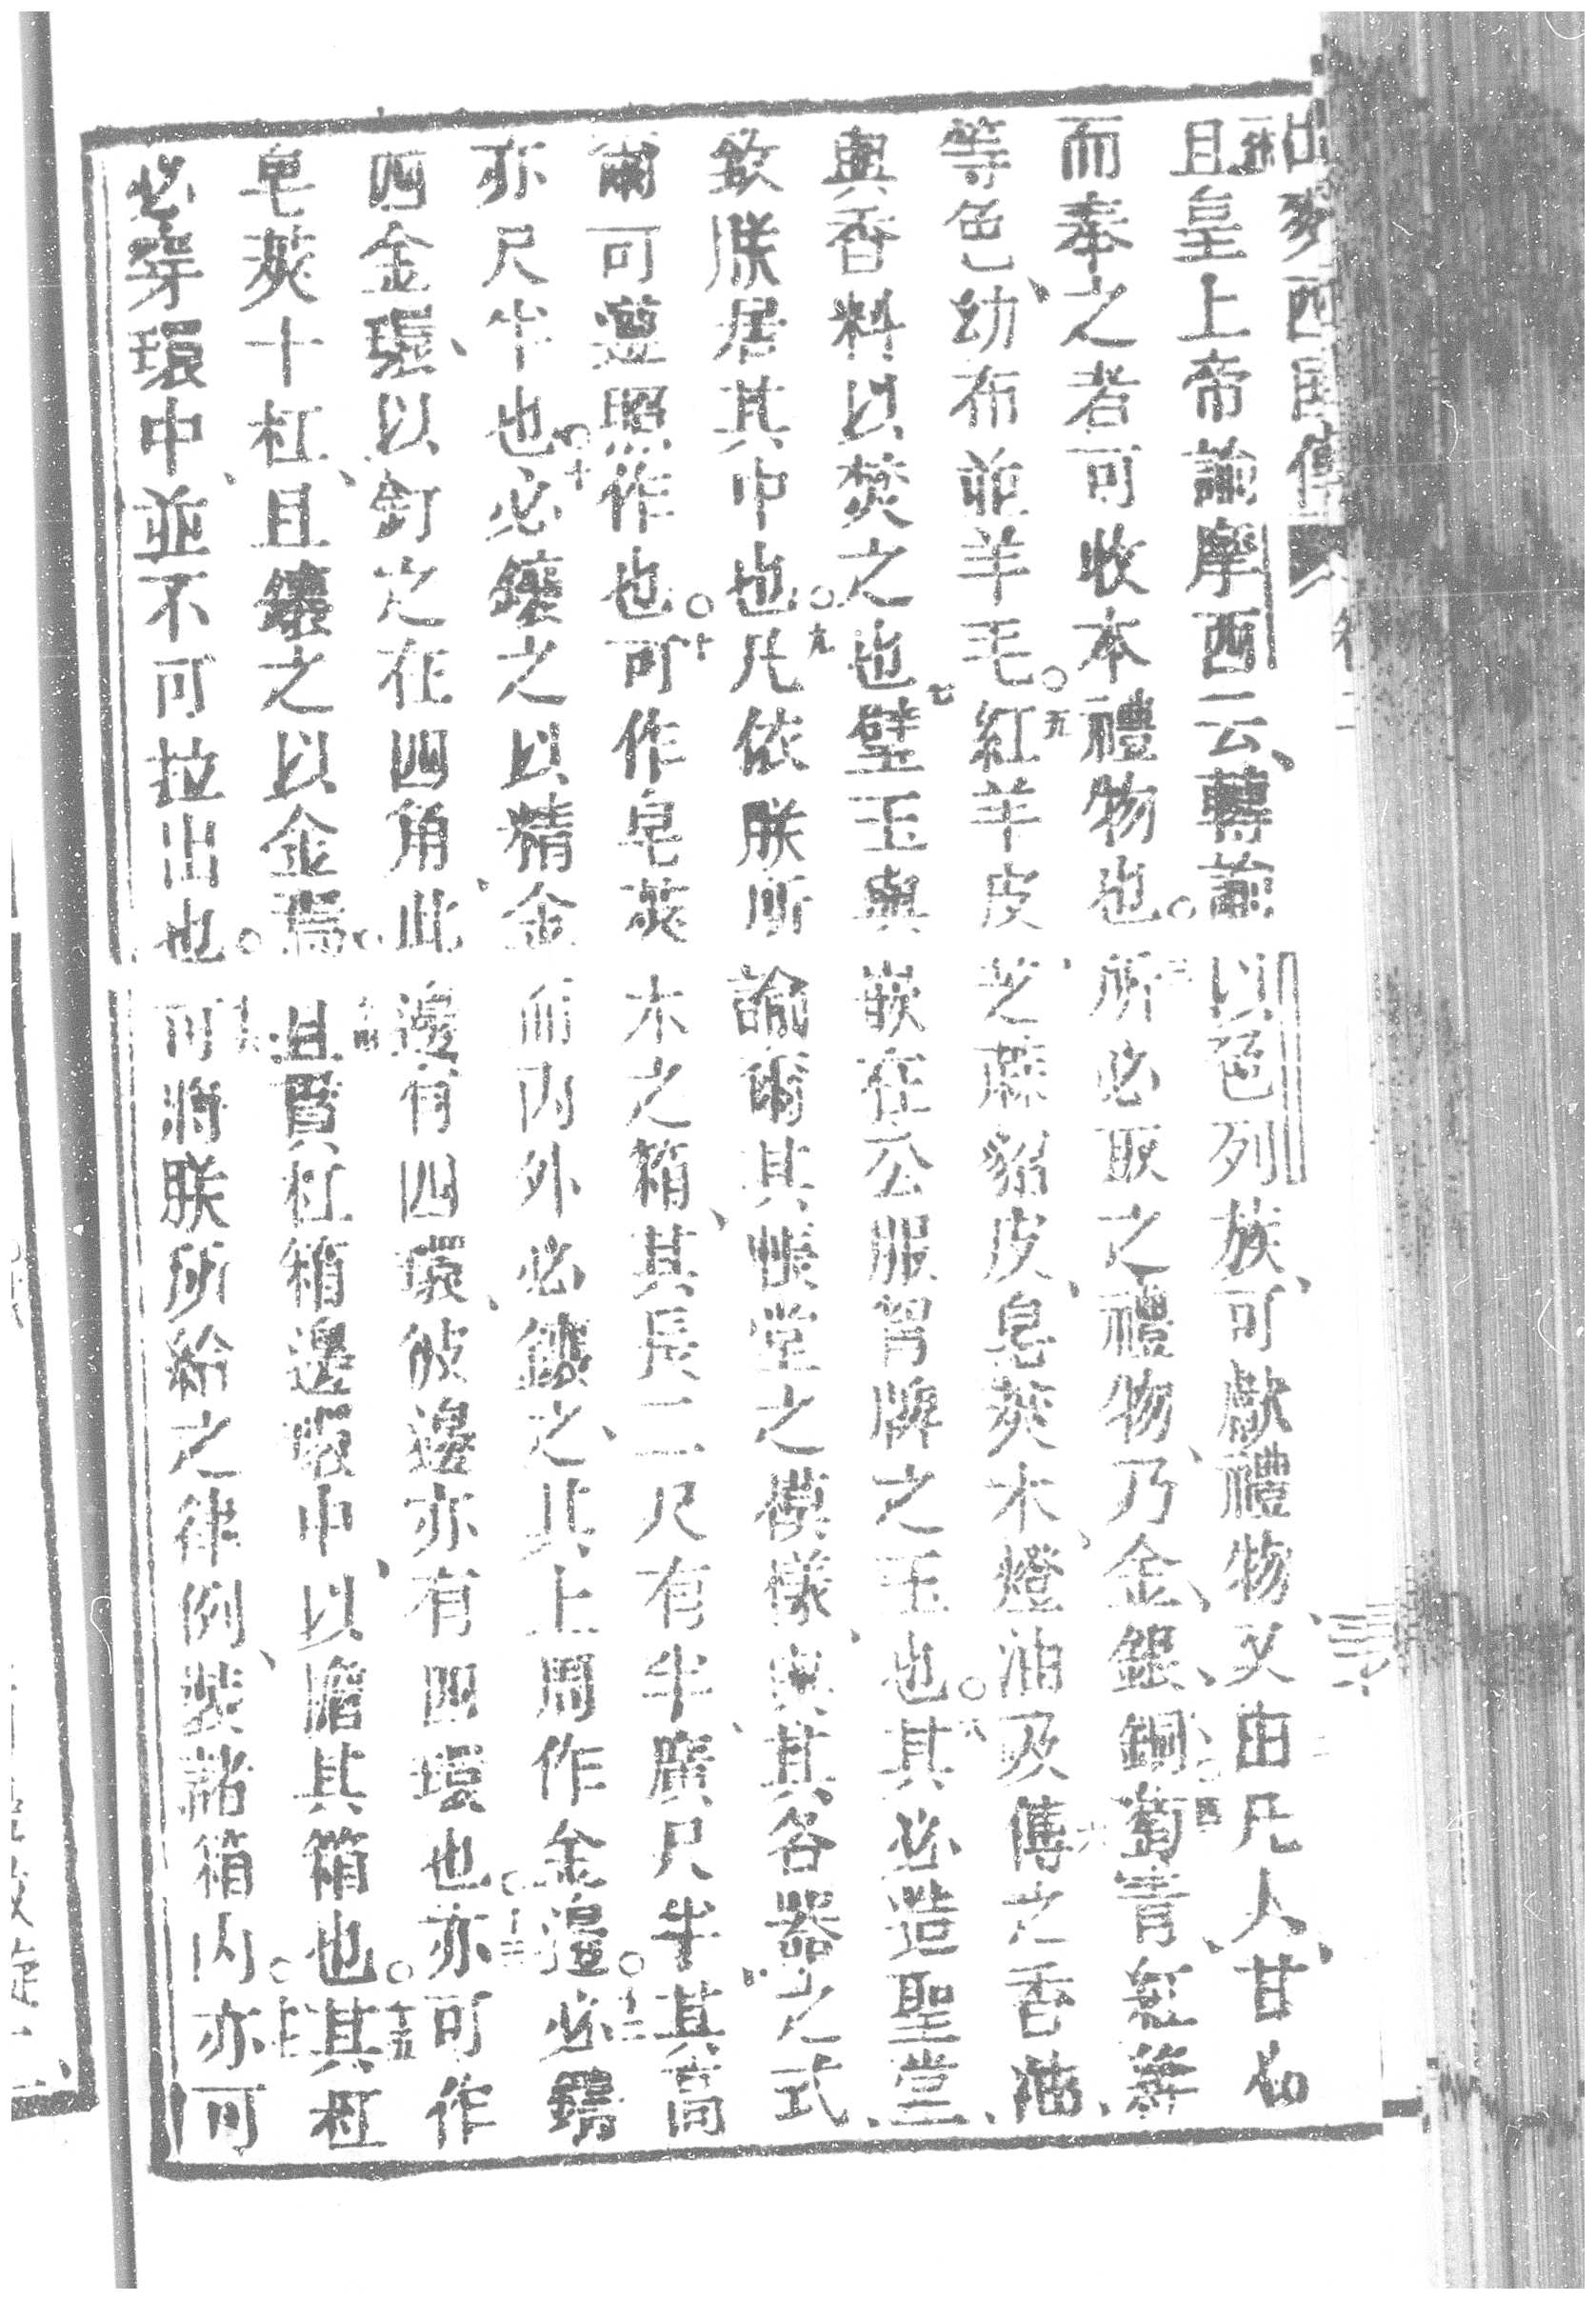 出麥西國傳
且皇上帝諭摩西云、轉諭以色列族、可獻禮物又由凡人、甘心
而奉之者可收本禮物也。所必取之禮物、乃金、銀、銅四葡青、紅、等
等色、幼布並羊毛。五紅羊皮、芝蔴貂皮、皂莢木、燈油及傅之香油、
與香料以焚之也七璧玉與嵌在公服胷牌之玉也。八其必造聖堂、
欽朕居其中也。九凡依朕所諭爾其帳堂之模樣、與其各器之式、
爾可遵照作也。十可作皂莢木之箱、其長二尺有半、廣尺半其高
亦尺半也。十一必鑲之以精金、而內外必鑲之、其上周作金邊。十二必鑄
四金環、以釘之在四角、此邊有四環、彼邊亦有四環也。十三亦可作
皂莢十杠、且鑲之以金焉。十四且貫杠箱邊環中、以擔其箱也。十五其杠
必穿環中、並不可拉出也。十六可將朕所給之律例、裝諸箱內。十七亦可